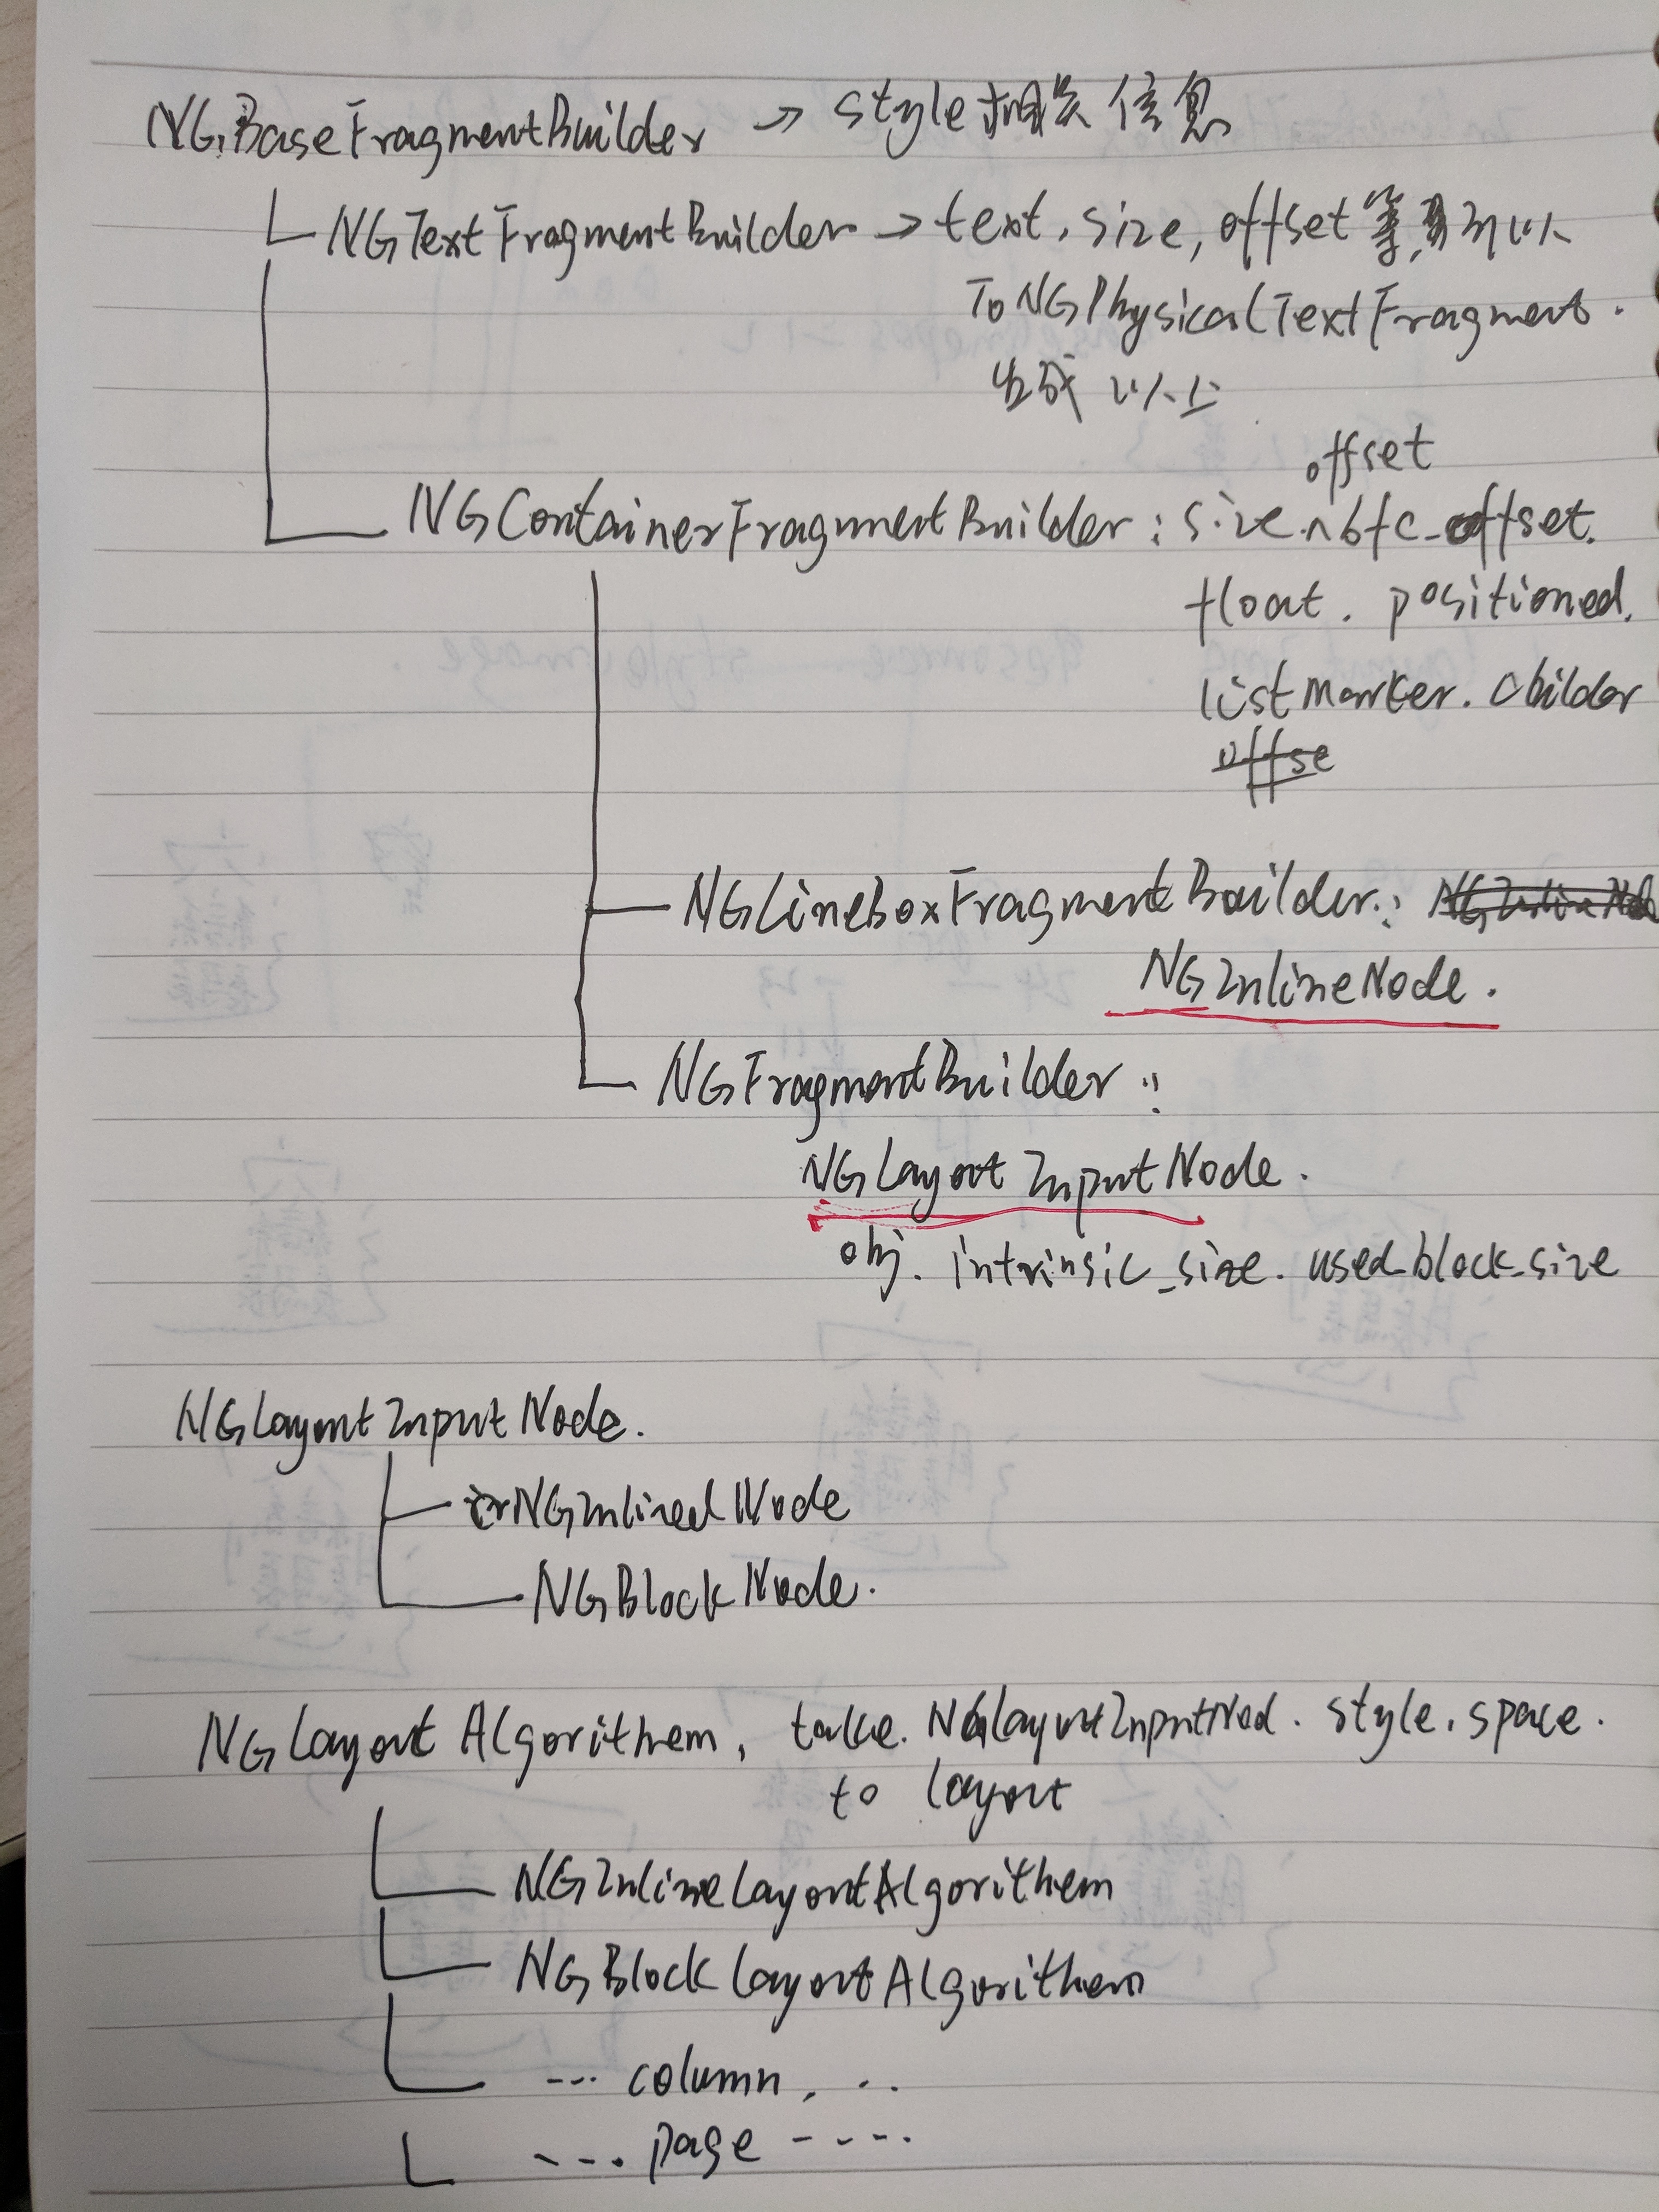 NGBaseFragmentBuilder → style相关信息
NGTextFragmentBuilder → text, size, offset等,可以
ToNGPhysicalTextFragment.
生成以上
offset
NGContainerFragmentBuilder: size.bfc_offset.
float. positioned.
listMarker. childer
offse
NGLineBoxFragmentBuilder: NGInlineNode
NGInlineNode.
NGFragmentBuilder:
NGLayoutInputNode.
obj. intrinsic_size. used_block_size
NGLayoutInputNode.
NGInlinedNode
NGBlockNode.
NGLayoutAlgorithem, take. NGLayoutInputNod. style. space.
to layout
NGInlineLayoutAlgorithem
NGBlockLayoutAlgorithem
--- column, ..
---. page ----.